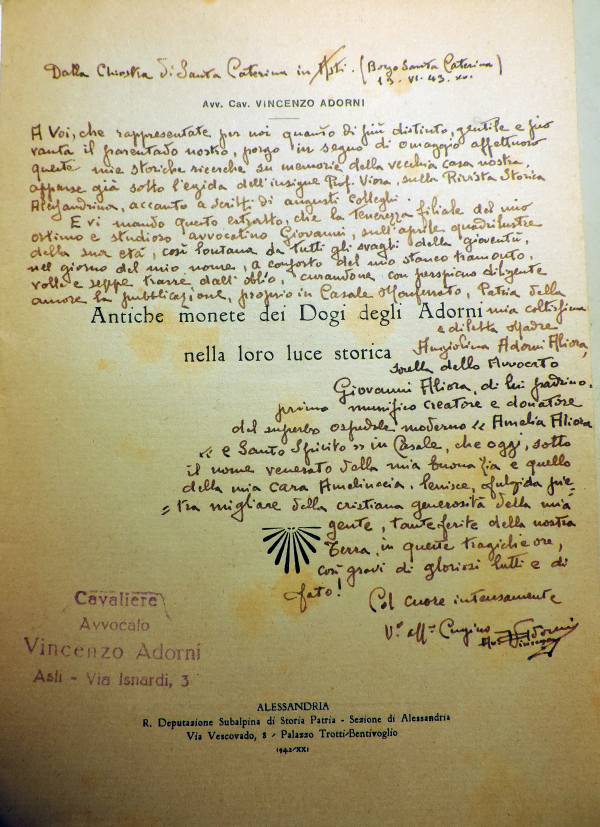 Dalla Chiostra di Santa Caterina in Asti. (Borgo Santa Caterina)
15. VI. 43. XXI.
Avv. Cav. VINCENZO ADORNI
A Voi, che rappresentate per noi quanto di più distinto, gentile e pio
vanta il parentado nostro, porgo in segno di omaggio affettuoso
queste mie storiche ricerche su memorie della vecchia casa nostra,
apparse già sotto l'egida dell'insigne Prof. Viora, sulla Rivista Storica
Alessandrina, accanto a scritti di augusti Colleghi.
E vi mando questo estratto, che la tenerezza filiale del mio
ottimo e studioso avvocatino Giovanni, sull'aprile quadrilustre
della sua età, così lontana da tutti gli svaghi della gioventù,
nel giorno del mio nome, a conforto del mio stanco tramonto,
volle e seppe trarre dall'oblio, curandone con perspicuo diligente
amore la pubblicazione, proprio in Casale Monferrato, Patria della
Antiche monete dei Dogi degli Adorni
mia coltissima
e diletta Madre
nella loro luce storica
Angiolina Adorni Aliora,
sorella dello Avvocato
Giovanni Aliora, di lui padrino,
primo munifico creatore e donatore
del superbo ospedale moderno « Amelia Aliora
« e Santo Spirito » in Casale, che oggi, sotto
il nome venerato della mia buona zia e quello
della mia cara Amelinccia, lenisce, fulgida pie=
=tra migliare della cristiana generosità della mia
gente, tante ferite della nostra
Terra, in queste tragiche ore,
così gravi di gloriosi lutti e di
fato!
Col cuore intensamente
V.° aff.° Cugino
Adorni
Vincenzo
Cavaliere
Avvocato
Vincenzo Adorni
Asti - Via Isnardi, 3
ALESSANDRIA
R. Deputazione Subalpina di Storia Patria - Sezione di Alessandria
Via Vescovado, 8 - Palazzo Trotti-Bentivoglio
1942/XXI